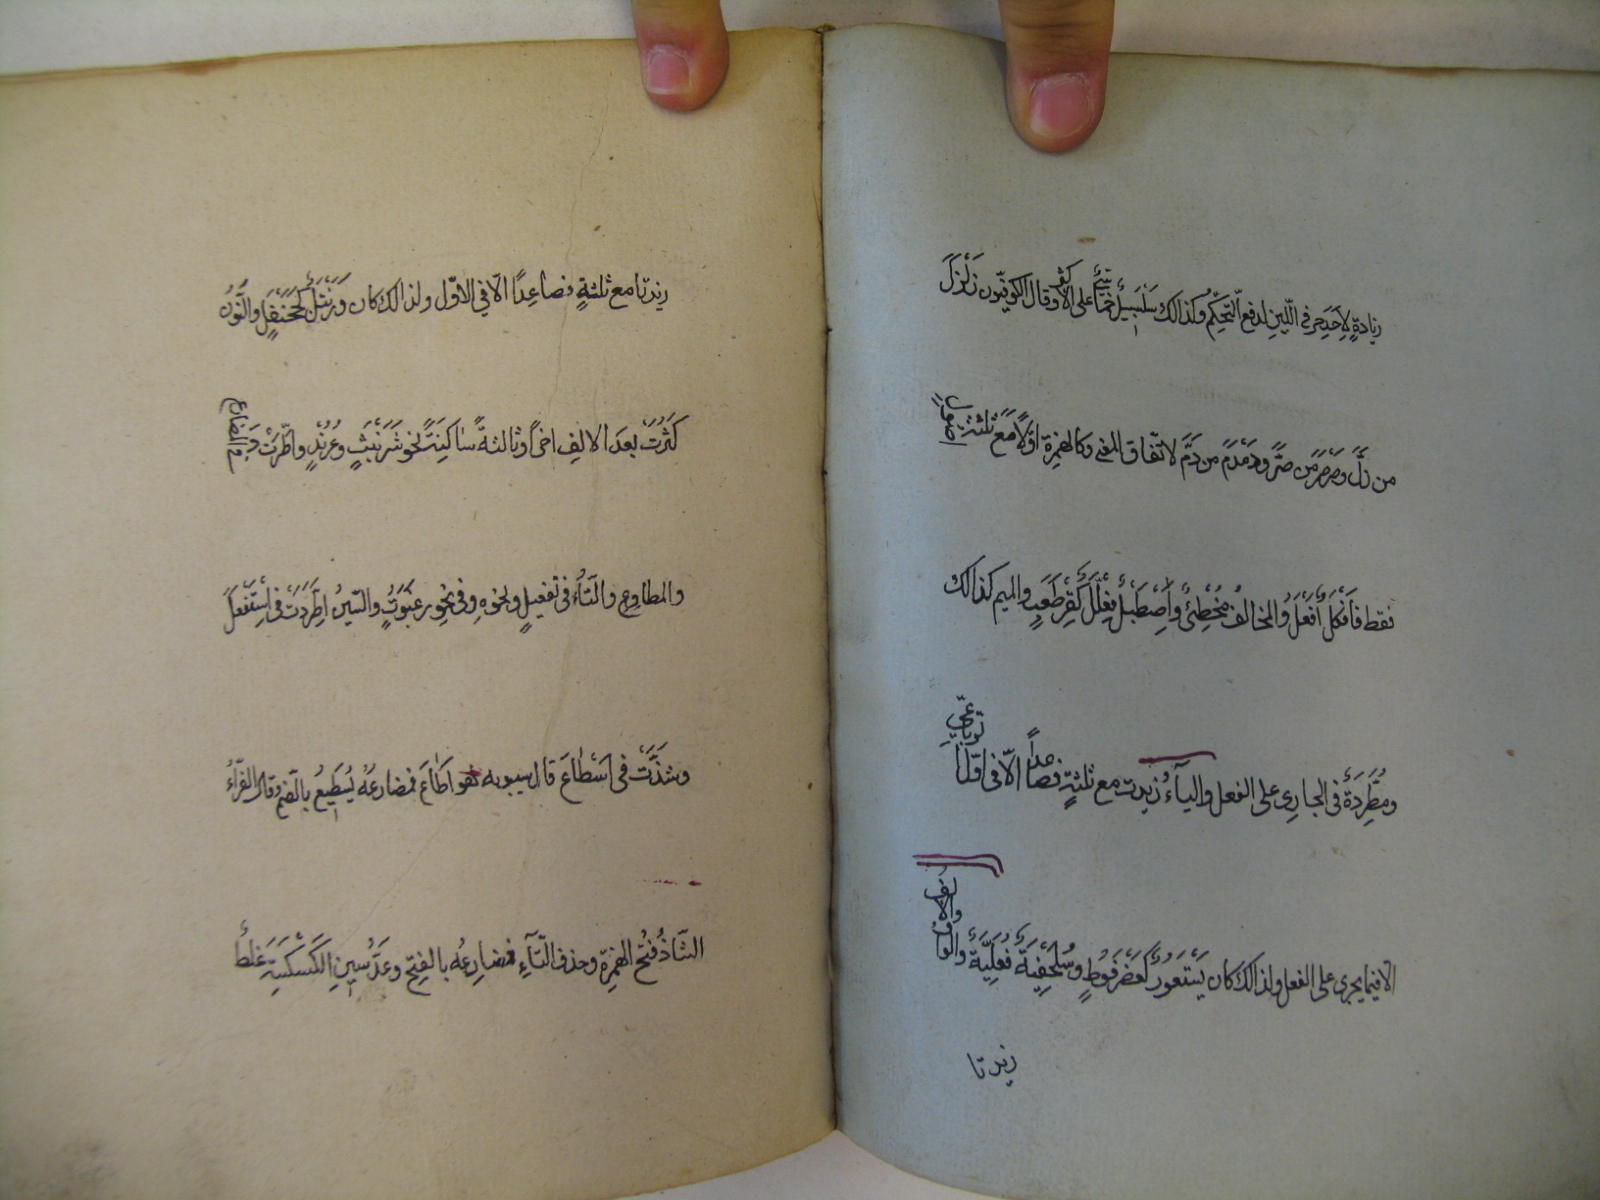 زيادةٍ لِأَحَدِ حرفى اللّين لدفع التّحكّم وكذالك سَلْسَبيلٌ خماسىٌّ على الأكثر وقال الكوفيّون زَلْزَلَ
من زلَّ وصَرْصَرَ من صرَّ ودَمْدَمَ من دَمَّ لاتّفاق المعنى وكالهمزة اوّلًا مع ثلثة اصولٍ
فقط فَأَفْكَلٌ أَفْعَلُ والمخالفُ مُخْطِئٌ وإِصْطَبْلٌ فِعْلَلٌّ كَقِرْطَعْبٍ والميم كذالك
ومُطَّرِدَةٌ فى الجارى على الفعل والياءُ زيدت مع ثلثةٍ فصاعدًا الّا فى اوّل الرّباعىّ
الّا فيما يجرى على الفعل ولذالك كان يَسْتَعُورٌ كَعَضْرَفُوطٍ وسُلَحْفِيَةٌ فُعَلِّيَةٌ والواو والالف
زيدتا
زيدتا مع ثلثةٍ فصاعِدًا الّا فى الاوّل ولذالك كان وَرَنْتَلٌ كَجَحَنْفَلٍ والنّونُ
كَثُرَتْ بعدَ الالِفِ اخرًا وثالثةً ساكِنَةً نحو شَرَنْبَثٍ وعُرُنْدٍ واطّردَتْ فى المضارع
والمطاوِعِ والتّاءُ فى تفعيلٍ ونحوِهِ وفى نحوِ رَغَبُوتٍ والسّينُ اطَّرَدَتْ فى اسْتَفْعَلَ
وشَذَّتْ فى اسْطَاعَ قال سيبويه هو اَطَاعَ فمضارعُهُ يُسْطِيعُ بالضّمّ وقال الفرّاءُ
الشّاذُّ فتحُ الهمزة وحذف التّاءِ فمضارِعُه بالفتح وعَدُّ سينِ الكَسْكَسَةِ غلطٌ